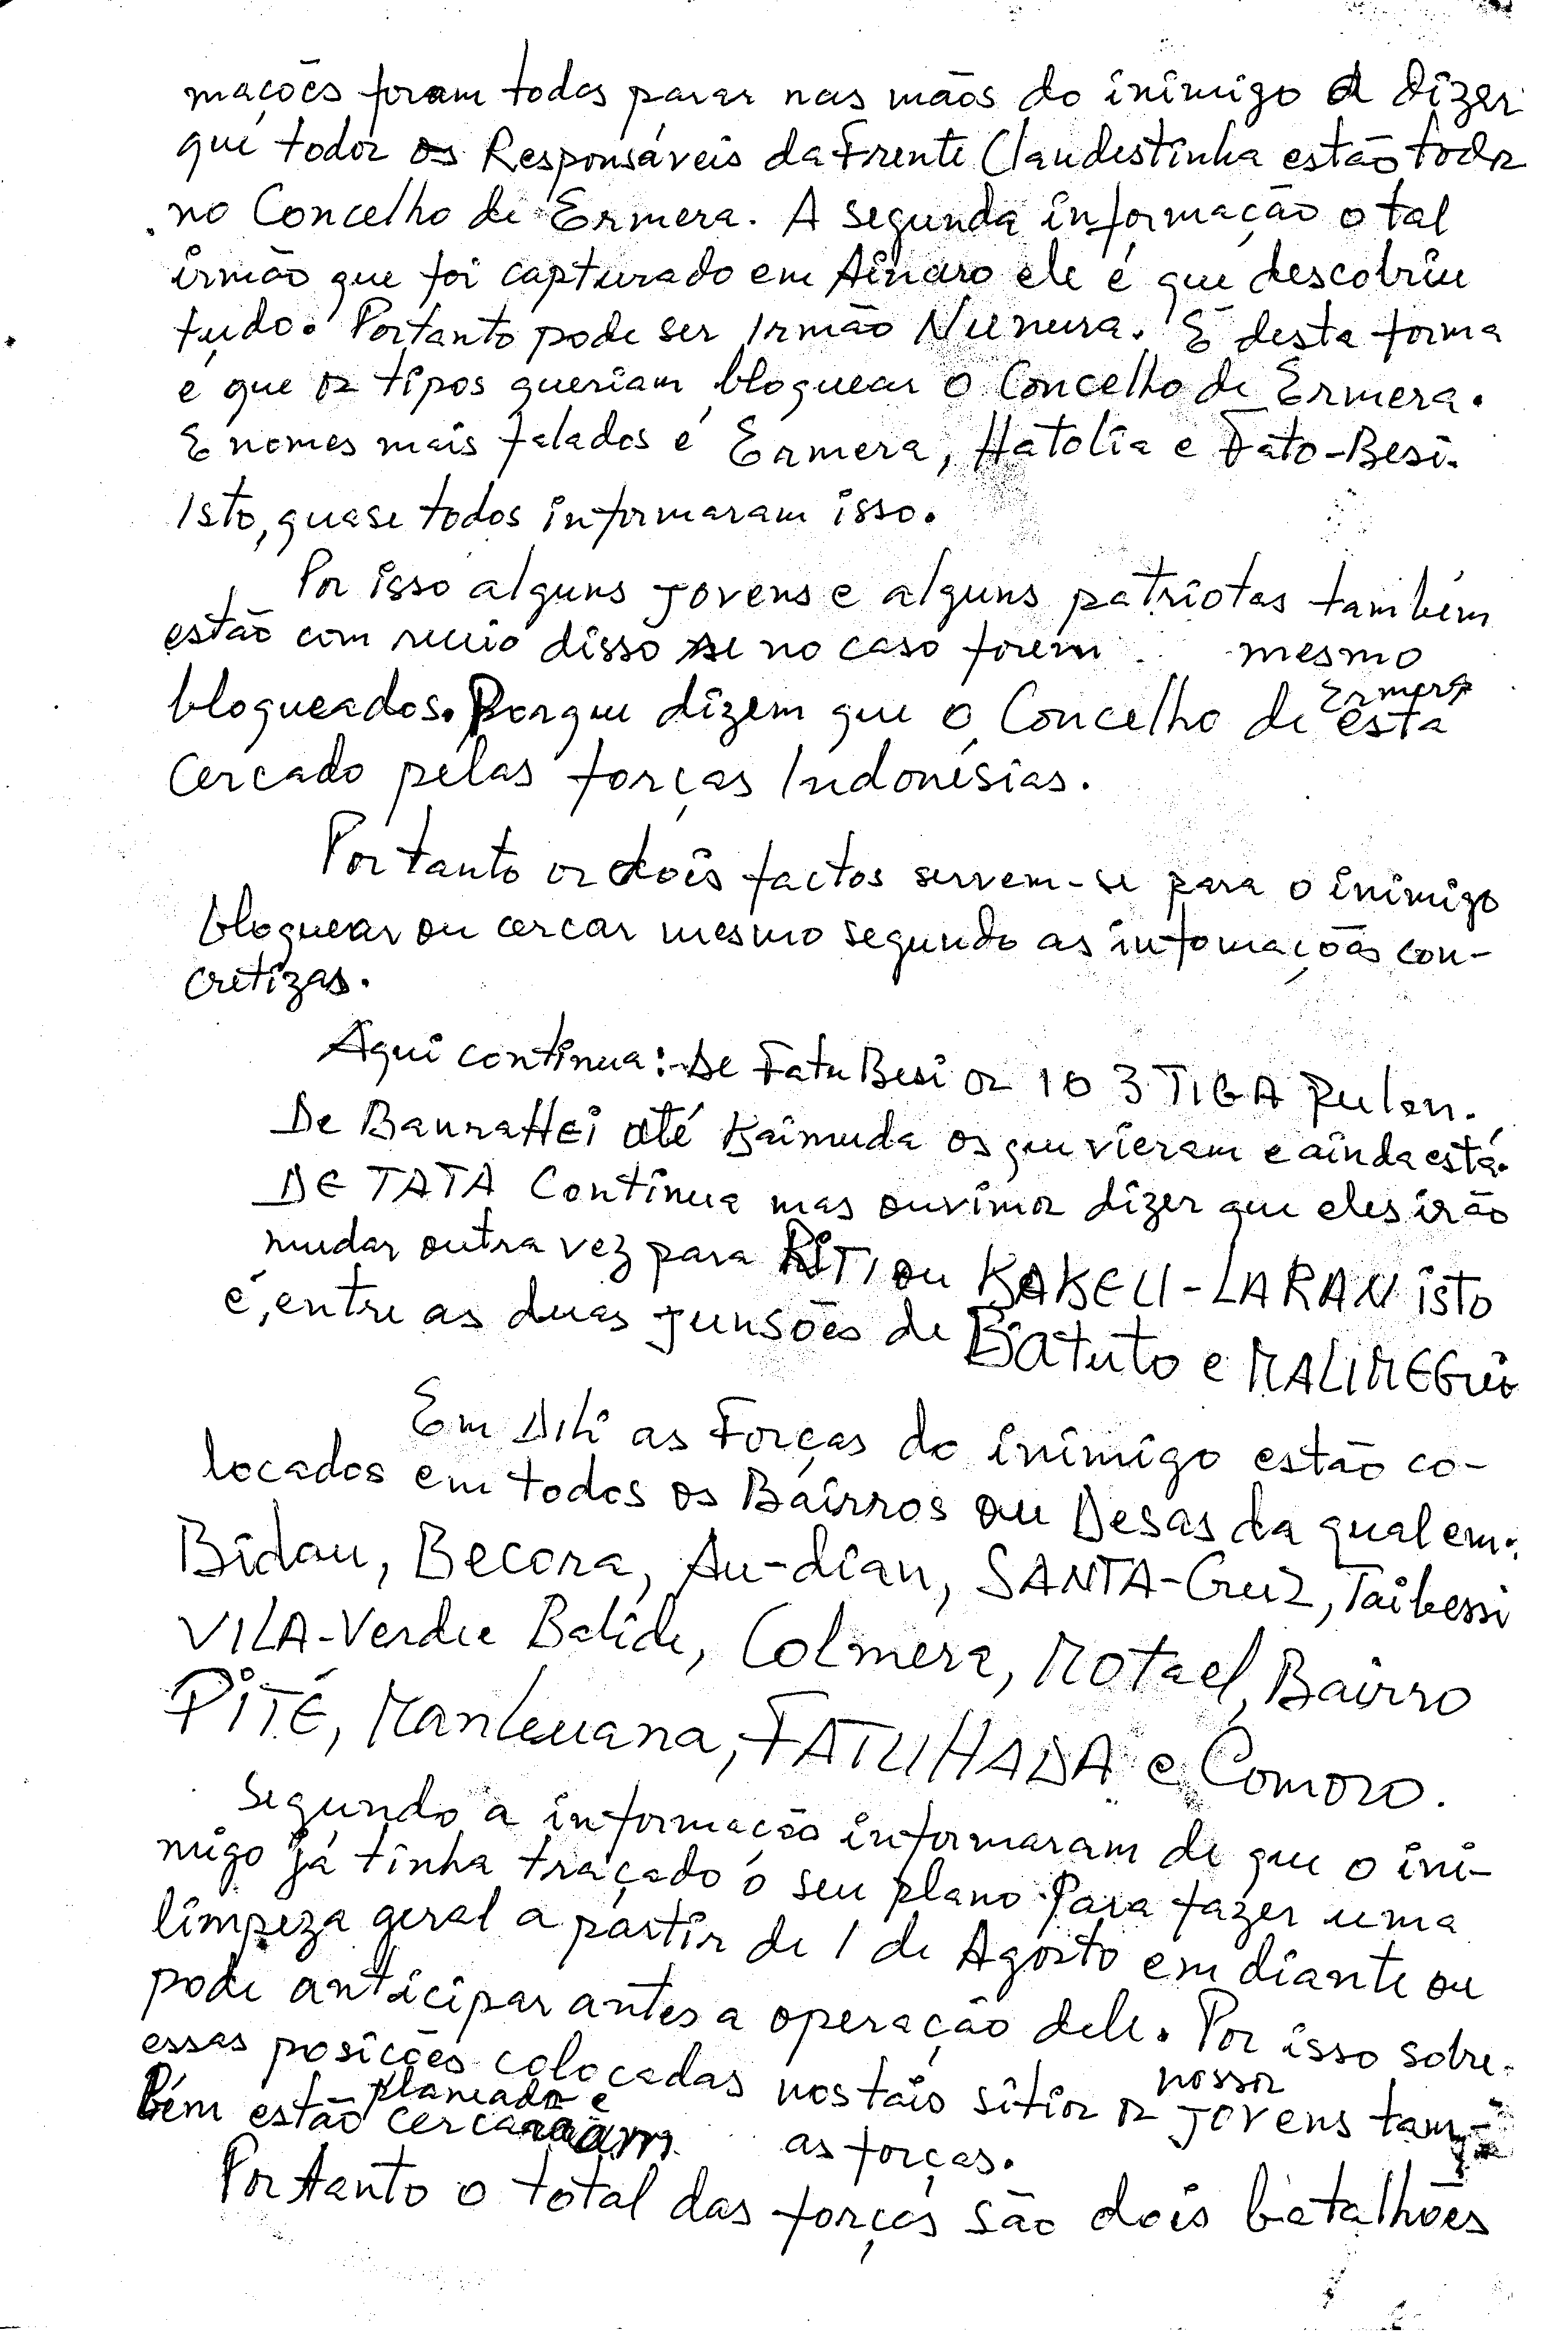 mações foram todas parar nas mãos do inimigo a dizer
que todos os Responsáveis da Frente Clandestinha estão todos
no Concelho de Ermera. A segunda informação o tal
irmão que foi capturado em Ainaro ele é que descobriu
tudo. Portanto pode ser Irmão . E desta forma
é que os tipos queriam bloquear o Concelho de Ermera.
E nomes mais falados é Ermera, Hatolia e Fato-Besi.
Isto, quase todos informaram isso.
Por isso alguns jovens e alguns patriotas também
estão com receio disso se no caso forem mesmo
bloqueados. Porque dizem que o Concelho de Ermera está
cercado pelas forças Indonésias.
Portanto os dois factos servem-se para o inimigo
bloquear ou cercar mesmo segundo as infomações con-
cretizas.
Aqui continua:-De Fatu Besi os 103 TIGA Pulou.
De BauraHEi até Kaimuda os que vieram e ainda está.
DE TATA Continua mas ouvimos dizer que eles irão
mudar outra vez para RiTi ou KAKEU-LARAN isto
é, entre as duas junsões de Batuto e MALIMEGui
Em Dili as Forças do inimigo estão co-
locados em todos os Bairros ou Desas da qual em:
Bidau, Becora, Au-dian, SANTA-Cruz, Taibessi
VILA-Verde Balide, Colmera, Motael, Bairro
PiTÉ, Manleuana, FATUHADA e Comoro.
Segundo a informação informaram de que o ini-
migo já tinha traçado o seu plano. Para fazer uma
limpeza geral a partir de 1 de Agosto em diante ou
pode anticipar antes a operação dele. Por isso sobre
essas posições colocadas nos tais sitios os nossos jovens tam-
bém estão planeados e cercaram as forças.
Portanto o total das forças são dois batalhões